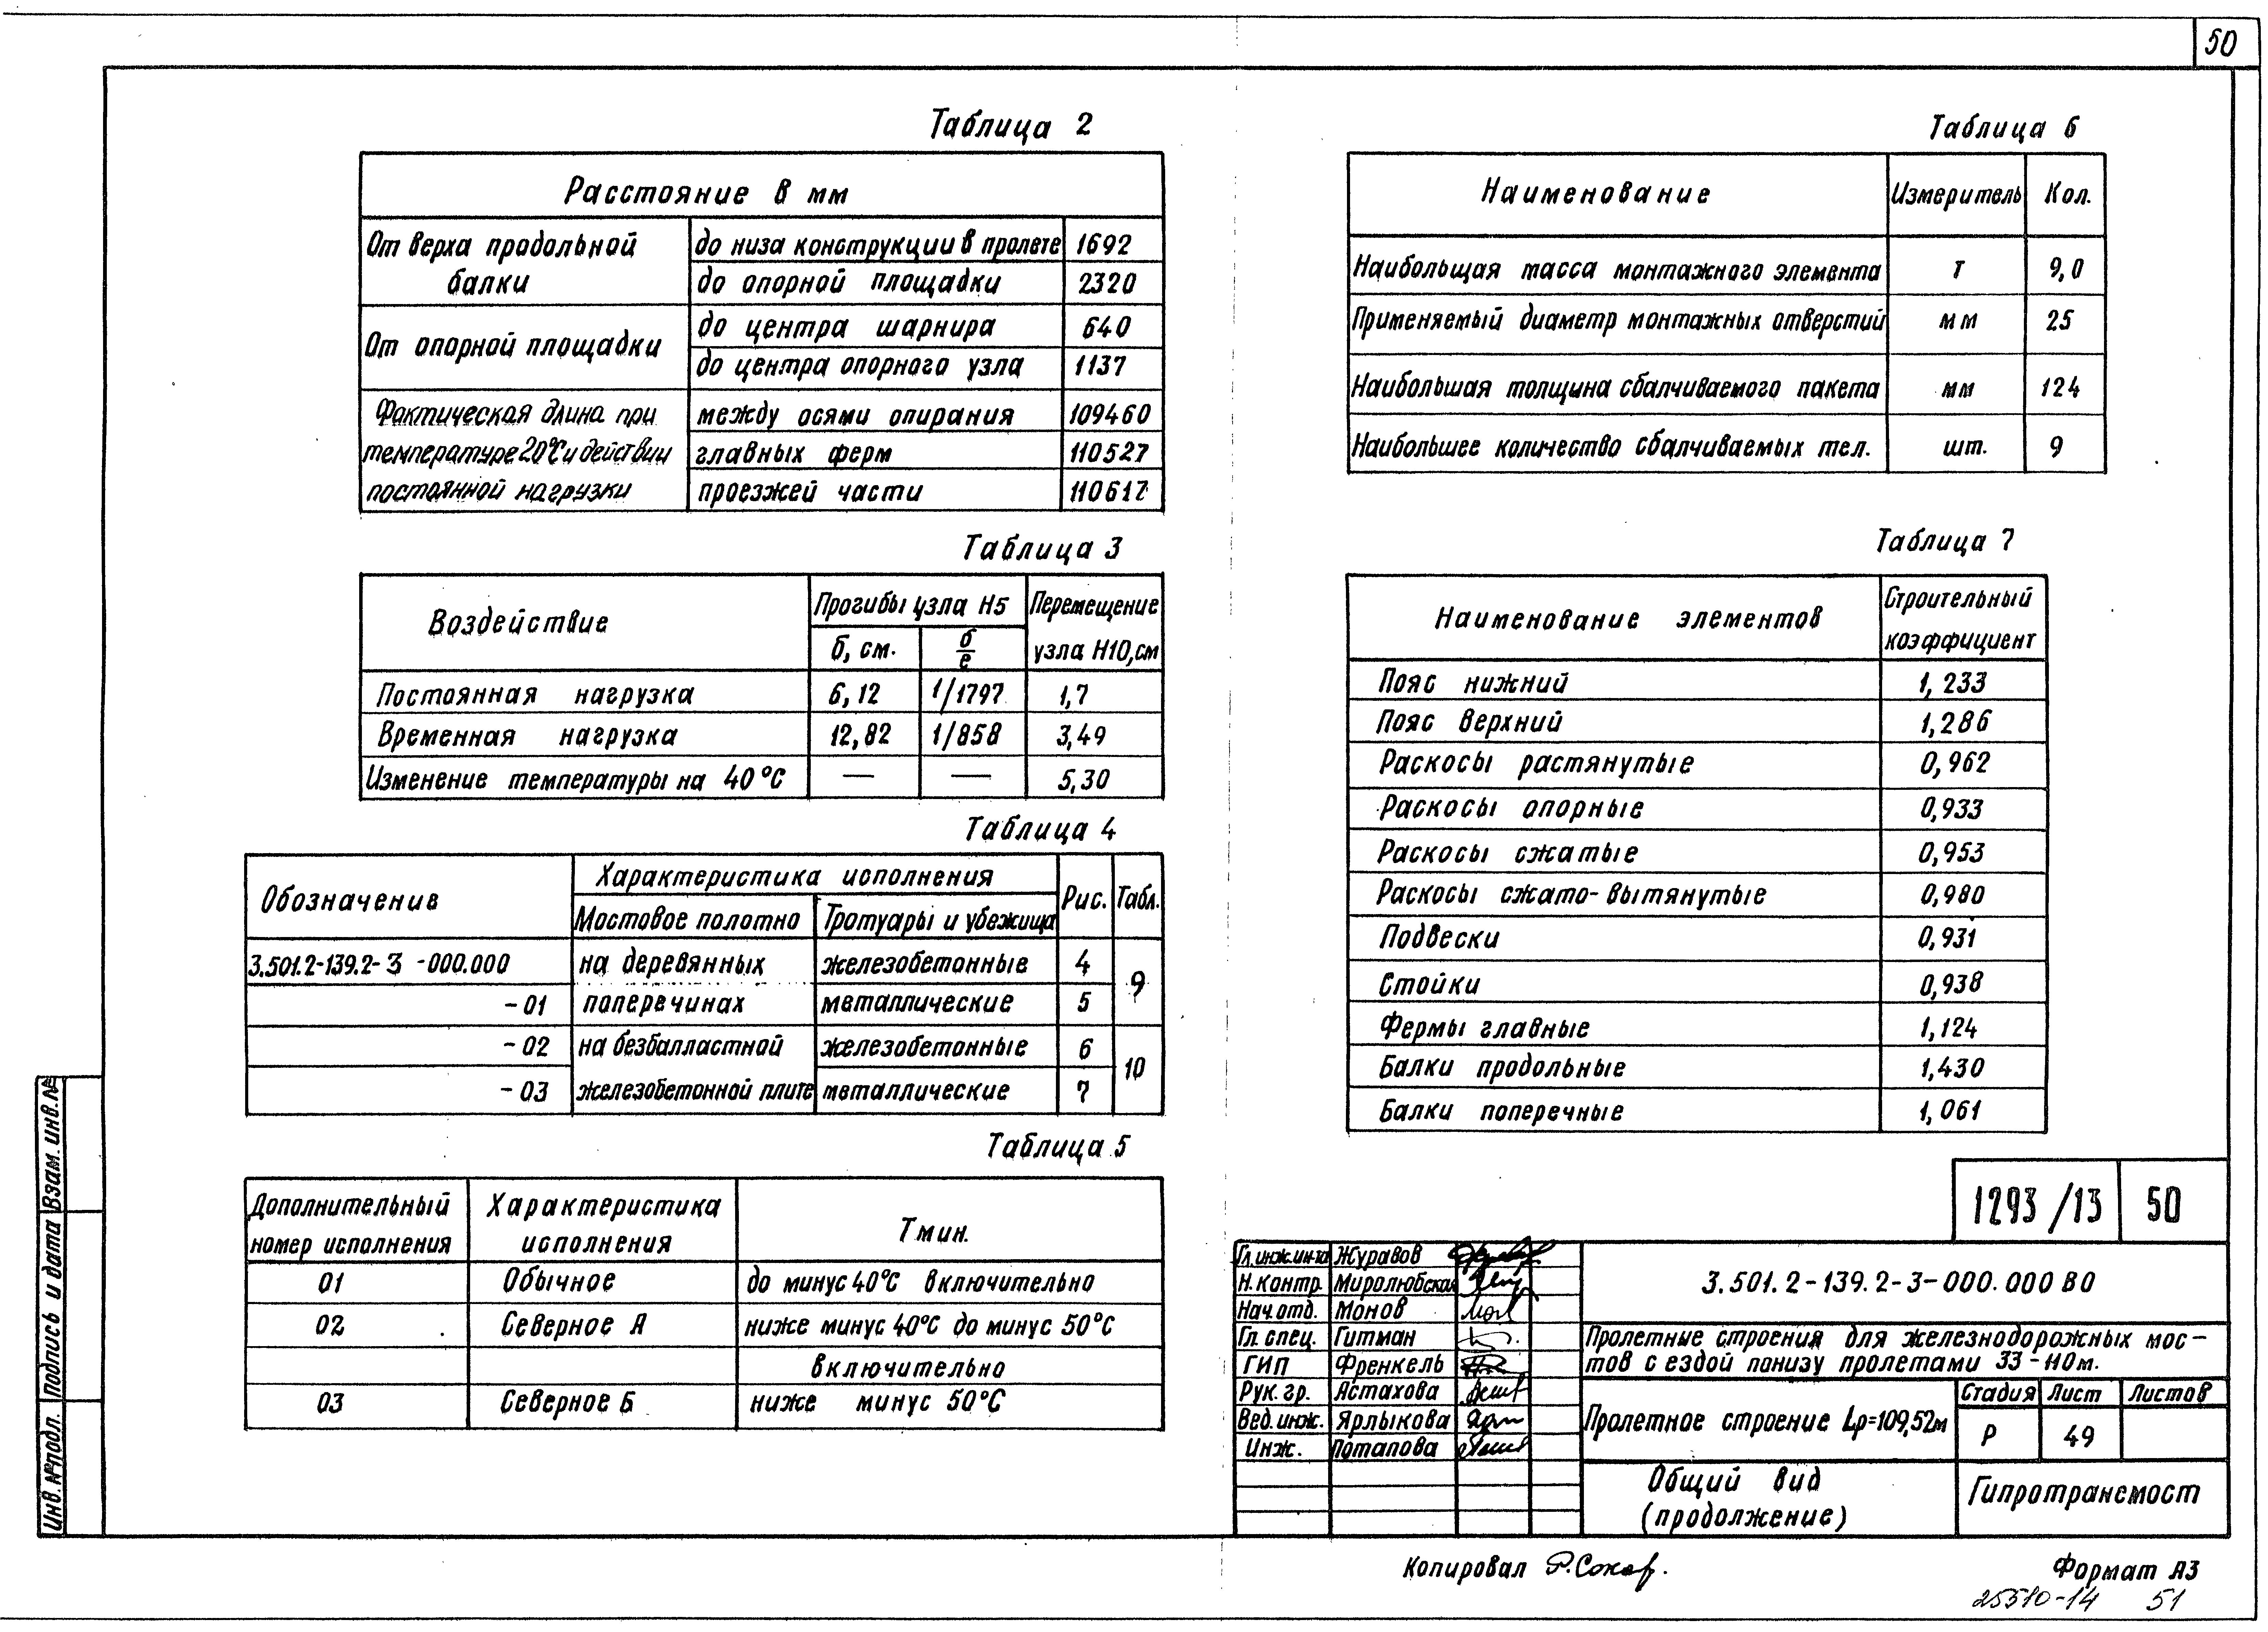 50
Таблица 2
Расстояние в мм
От верха продольной балки
до низа конструкции в пролете 1692
до опорной площадки 2320
От опорной площадки
до центра шарнира 640
до центра опорного узла 1137
Фактическая длина при температуре 20°С и действии постоянной нагрузки
между осями опирания 109460
главных ферм 110527
проезжей части 110617
Таблица 3
Воздействие
Прогибы узла Н5
Перемещение узла Н10, см
б, см.
б/е
Постоянная нагрузка 6,12 1/1797 1,7
Временная нагрузка 12,82 1/858 3,49
Изменение температуры на 40°С — — 5,30
Таблица 4
Обозначение
Характеристика исполнения
Рис.
Табл.
Мостовое полотно
Тротуары и убежища
3.501.2-139.2-3-000.000 на деревянных железобетонные 4 9
-01 поперечинах металлические 5
-02 на безбалластной железобетонные 6 10
-03 железобетонной плите металлические 7
Таблица 5
Дополнительный номер исполнения
Характеристика исполнения
Тмин.
01 Обычное до минус 40°С включительно
02 Северное А ниже минус 40°С до минус 50°С
включительно
03 Северное Б ниже минус 50°С
Таблица 6
Наименование Измеритель Кол.
Наибольшая масса монтажного элемента т 9,0
Применяемый диаметр монтажных отверстий мм 25
Наибольшая толщина сбалчиваемого пакета мм 124
Наибольшее количество сбалчиваемых тел. шт. 9
Таблица 7
Наименование элементов
Строительный коэффициент
Пояс нижний 1,233
Пояс верхний 1,286
Раскосы растянутые 0,962
Раскосы опорные 0,933
Раскосы сжатые 0,953
Раскосы сжато-вытянутые 0,980
Подвески 0,931
Стойки 0,938
Фермы главные 1,124
Балки продольные 1,430
Балки поперечные 1,061
1293/13 50
Гл.инж.ин-та Журавов
Н.контр. Миролюбская
Нач.отд. Монов
Гл.спец. Гитман
ГИП Френкель
Рук.гр. Астахова
Вед.инж. Ярлыкова
Инж. Потапова
3.501.2-139.2-3-000.000 ВО
Пролетные строения для железнодорожных мос-
тов с ездой понизу пролетами 33-110м.
Пролетное строение Lр=109,52м
Стадия Лист Листов
Р 49
Общий вид
(продолжение)
Гипротрансмост
Инв.№подл. Подпись и дата Взам.инв.№
Копировал Р.Сокор.
Формат А3
25510-14 51